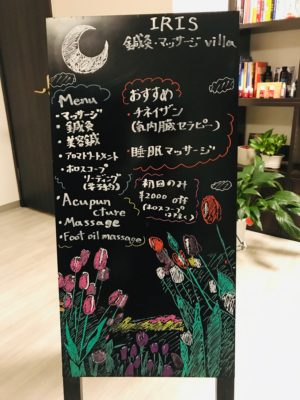 IRIS
鍼灸・マッサージ villa
Menu
・マッサージ
・鍼灸
・美容鍼
・アロマトリートメント
・ホロスコープ
リーディング
Acupun
cture
・Massage
・Foot oil massage
おすすめ
・チネイザン
(気内臓セラピー)
・睡眠マッサージ
初回のみ
¥2000 off
(ホロスコープ
は除く)